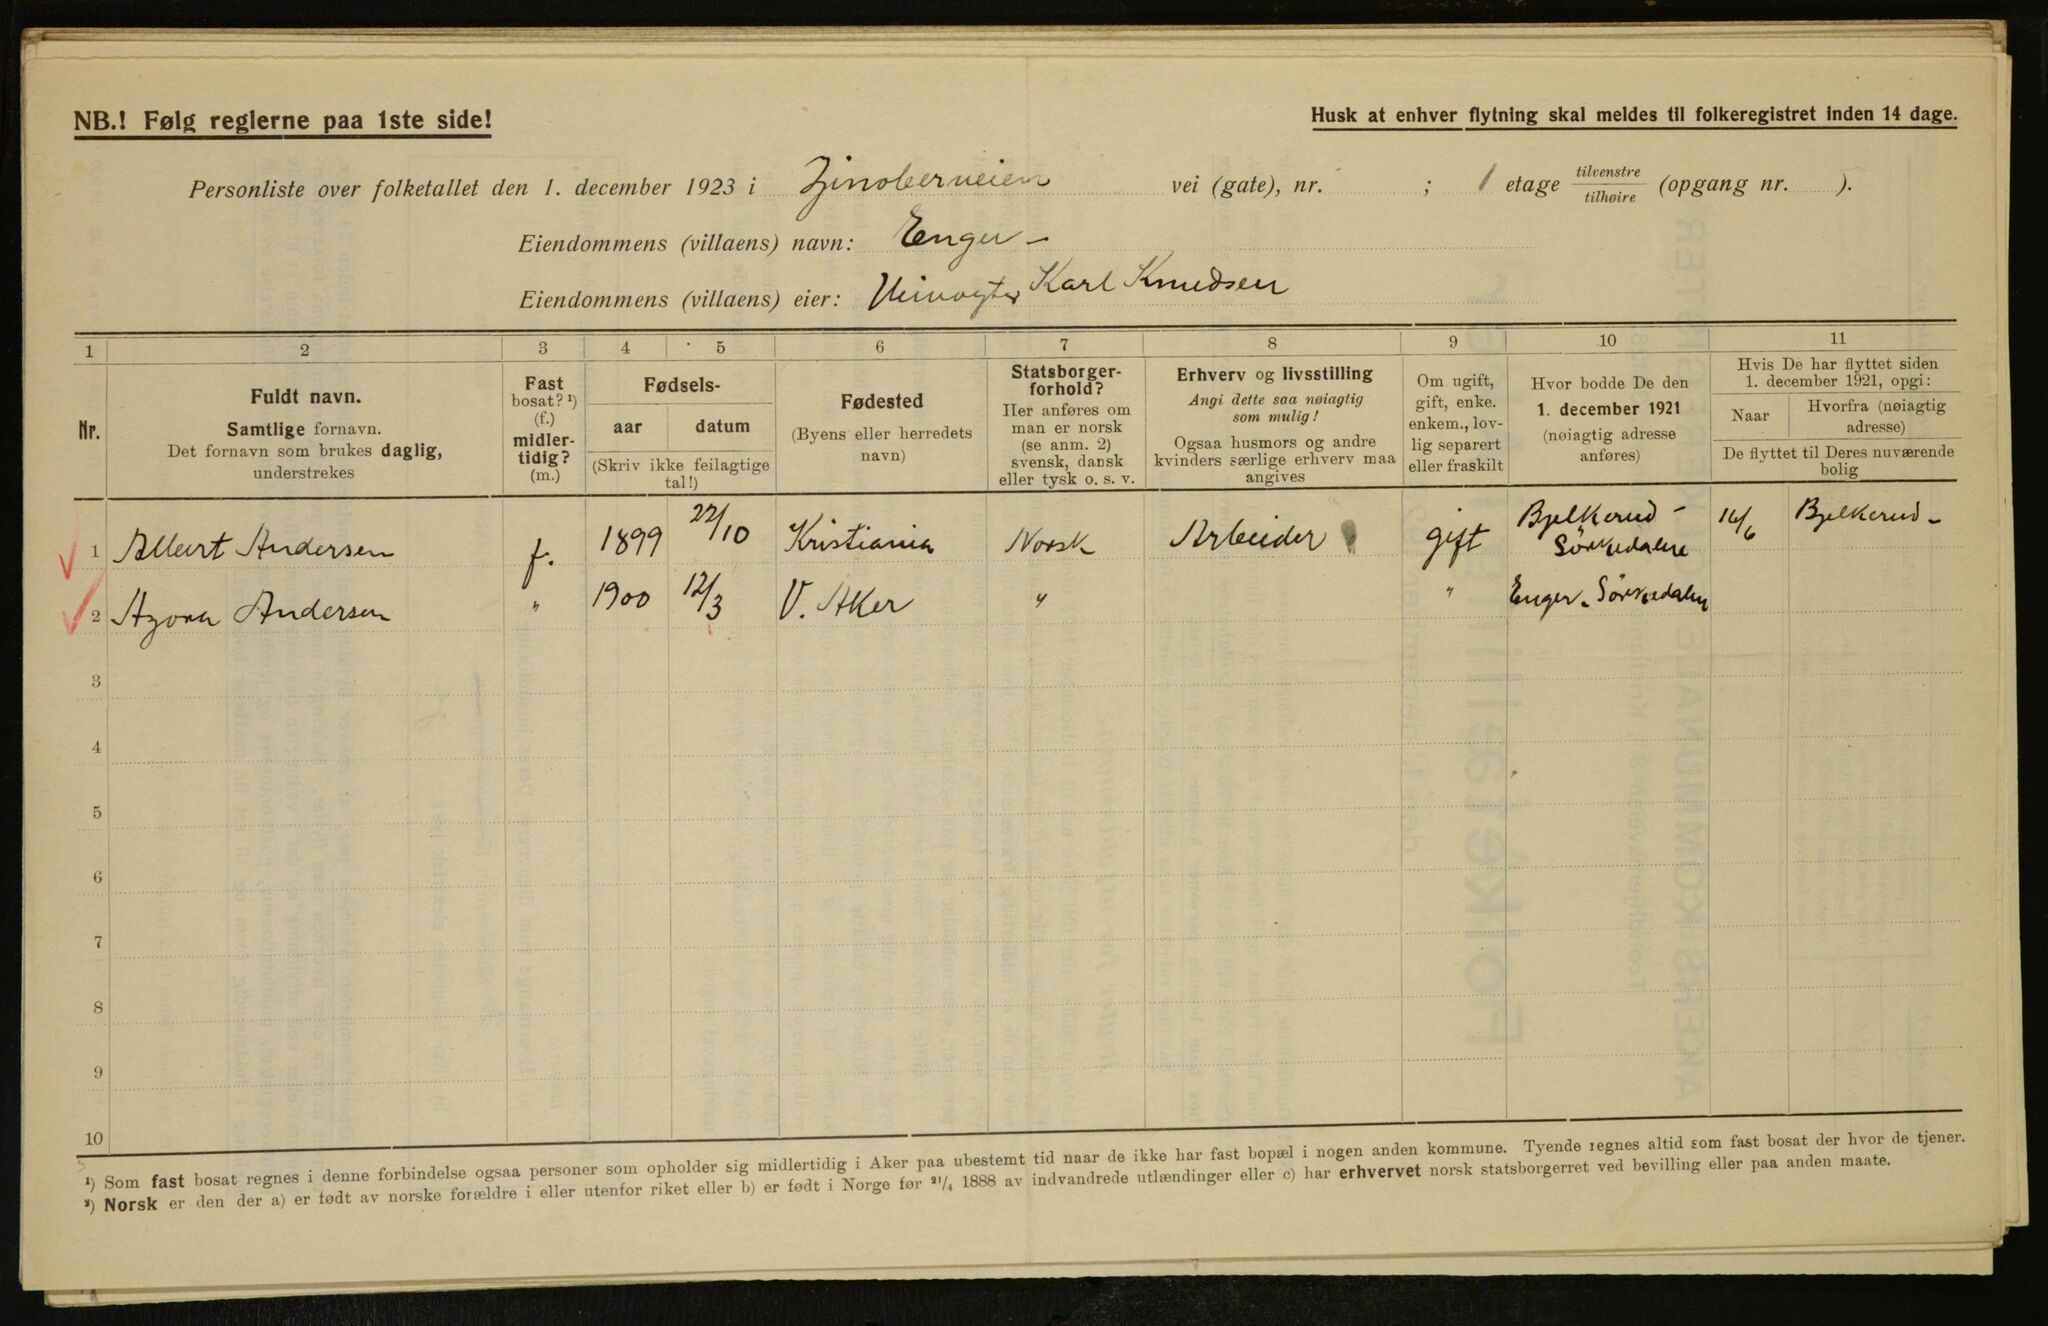 NB.! Følg reglerne paa 1ste side!
Husk at enhver flytning skal meldes til folkeregistret inden 14 dage.
Personliste over folketallet den 1. december 1923 i Zinoberveien vei (gate), nr. ; 1 etage tilvenstre / tilhøire (opgang nr. ).
Eiendommens (villaens) navn: Enger
Eiendommens (villaens) eier: Veivogter Karl Knudsen
1 2 3 4 5 6 7 8 9 10 11
Nr.
Fuldt navn.
Samtlige fornavn.
Det fornavn som brukes daglig,
understrekes
Fast
bosat? ¹)
(f.)
midler-
tidig?
(m.)
Fødsels-
aar datum
(Skriv ikke feilagtige
tal!)
Fødested
(Byens eller herredets
navn)
Statsborger-
forhold?
Her anføres om
man er norsk
(se anm. 2)
svensk, dansk
eller tysk o. s. v.
Erhverv og livsstilling
Angi dette saa nøiagtig
som mulig!
Ogsaa husmors og andre
kvinders særlige erhverv maa
angives
Om ugift,
gift, enke.
enkem., lov-
lig separert
eller fraskilt
Hvor bodde De den
1. december 1921
(nøiagtig adresse
anføres)
Hvis De har flyttet siden
1. december 1921, opgi:
Naar
Hvorfra (nøiagtig
adresse)
De flyttet til Deres nuværende
bolig
1 Albert Andersen f. 1899 22/10 Kristiania Norsk Arbeider gift Bjelkerud - Sørkedalen 16/6 Bjelkerud -
2 Andersen " 1900 12/3 V. Aker " " Enger - Sørkedalen
3
4
5
6
7
8
9
10
¹) Som fast bosat regnes i denne forbindelse ogsaa personer som opholder sig midlertidig i Aker paa ubestemt tid naar de ikke har fast bopæl i nogen anden kommune. Tyende regnes altid som fast bosat der hvor de tjener.
²) Norsk er den der a) er født av norske forældre i eller utenfor riket eller b) er født i Norge før 21/4 1888 av indvandrede utlændinger eller c) har erhvervet norsk statsborgerret ved bevilling eller paa anden maate.